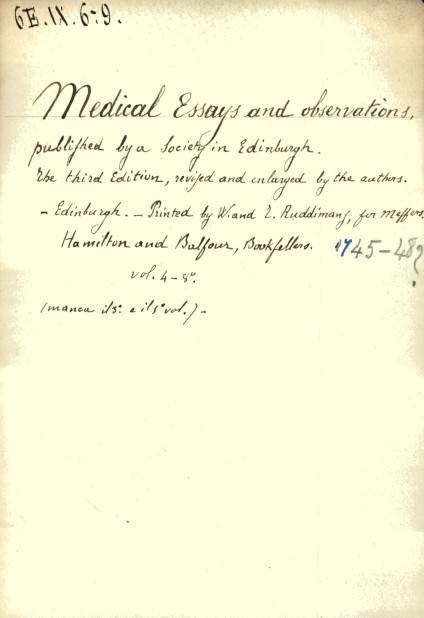 6E.IX.6-9.
Medical Essays and observations,
publiſhed by a Society in Edinburgh.
The third Edition, reviſed and enlarged by the authors.
- Edinburgh. - Printed by W. and T. Ruddimans, for Meſſers.
Hamilton and Balfour, Bookſellers. 1745-48?
vol. 4-8°.
(manca il 3° e il 5° vol.) -